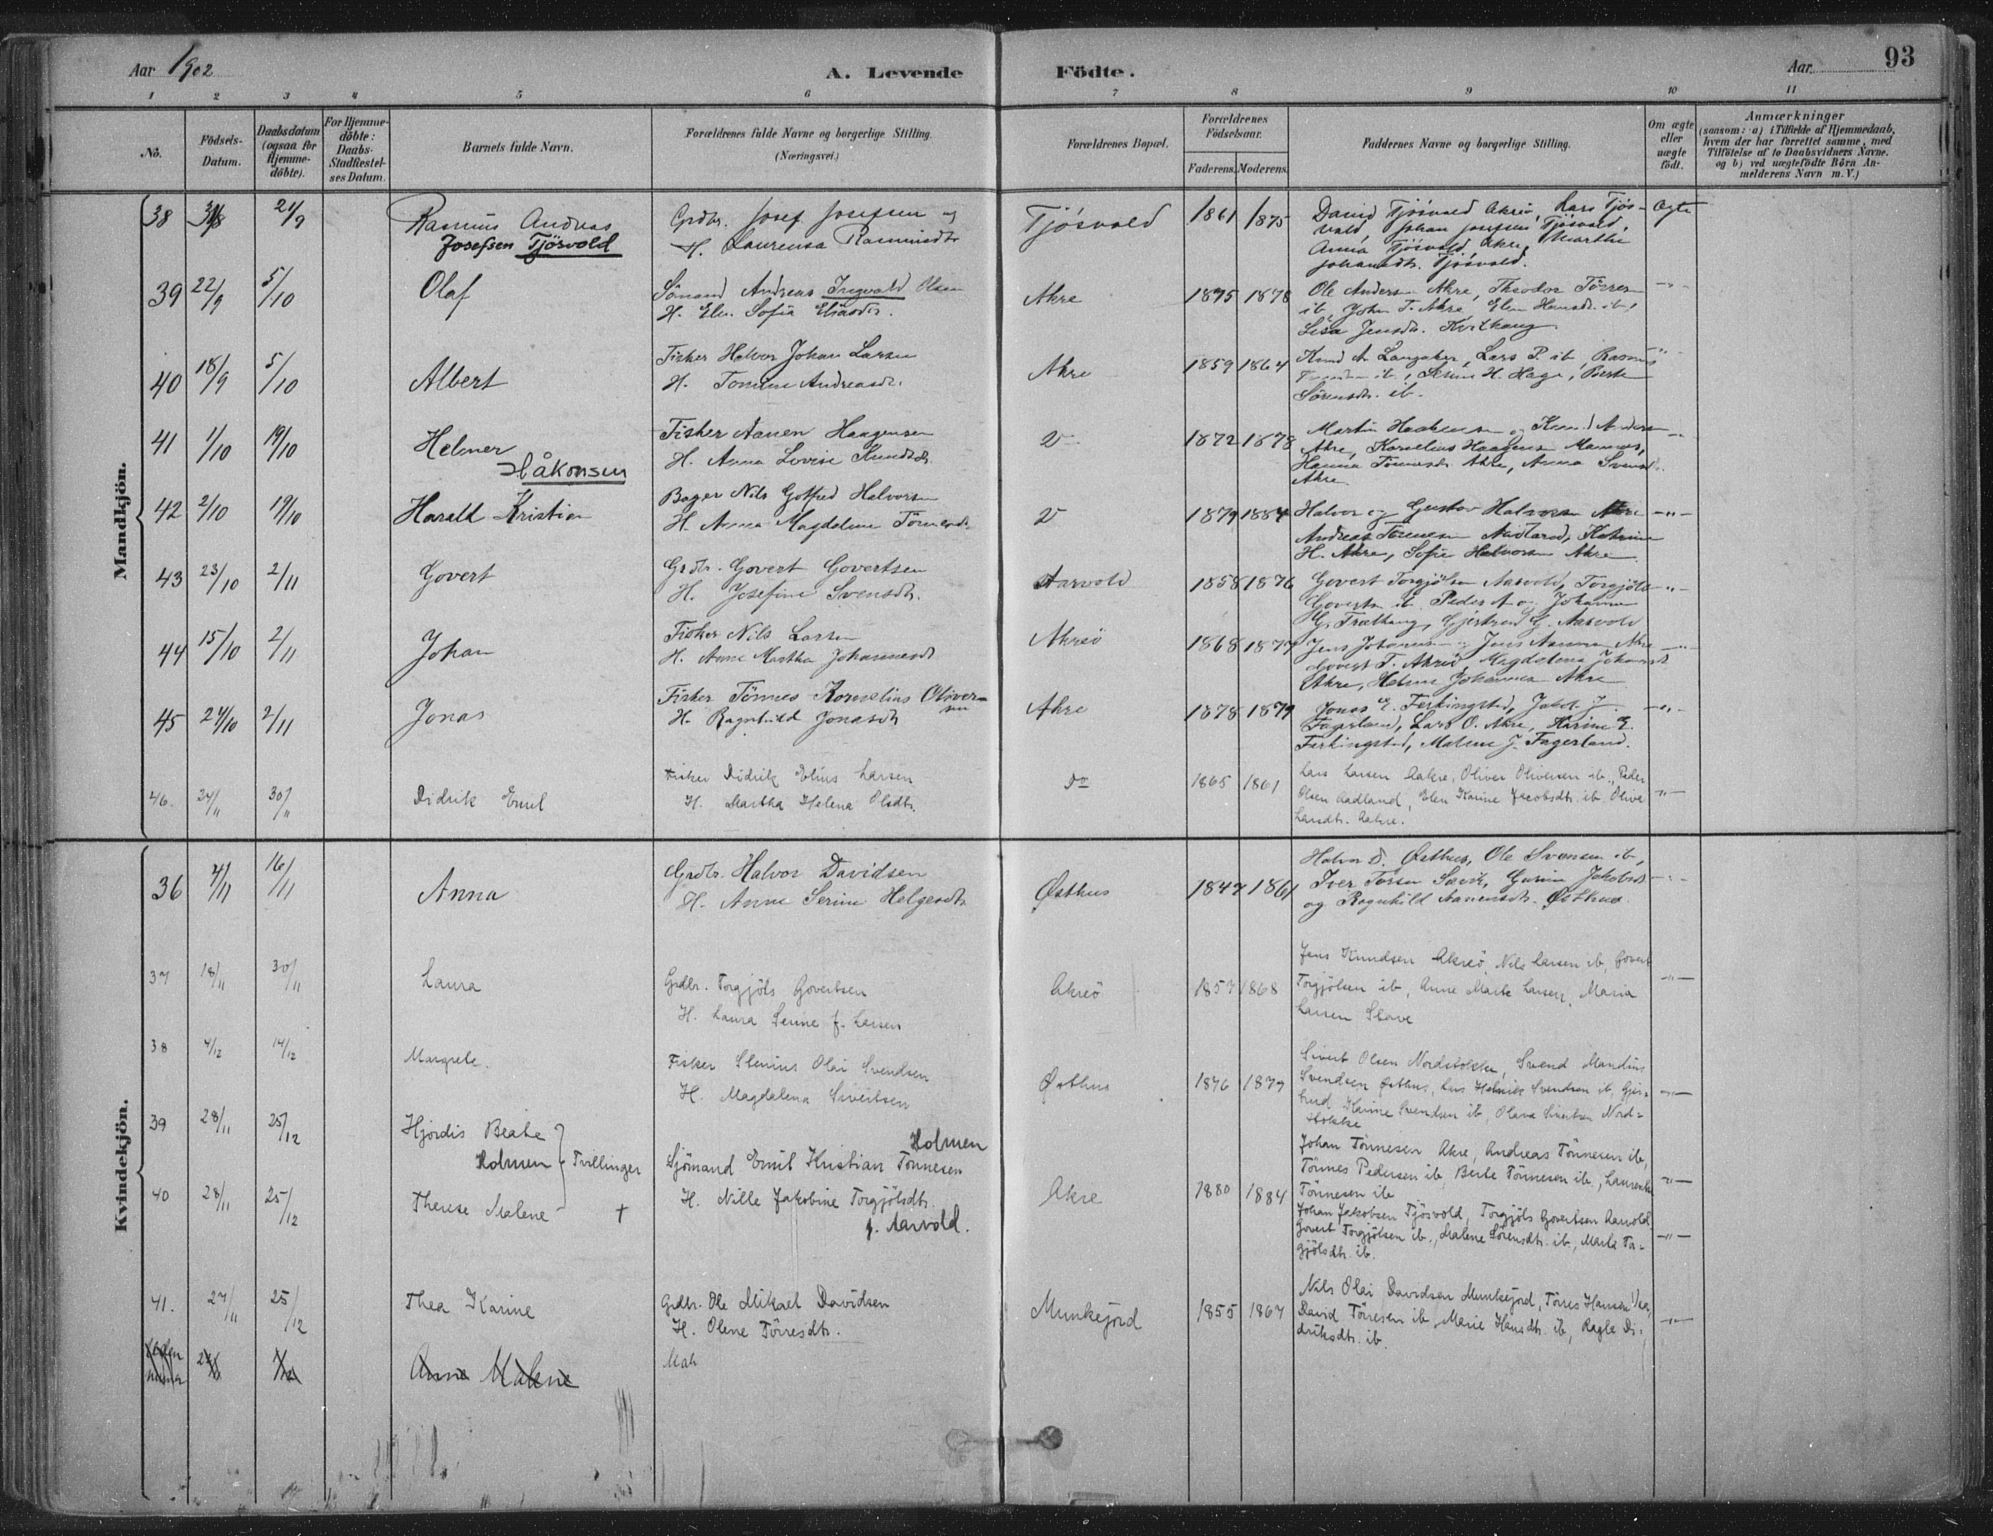 Aar 1902
A. Levende Födte.
Aar
93
1 2 3 4 5 6 7 8 9 10 11
No.
Födsels-
Datum.
Daabsdatum
(ogsaa for
Hjemme-
döbte).
For Hjemme-
döbte:
Daabs-
Stadfæstel-
ses Datum.
Barnets fulde Navn.
Forældrenes fulde Navne og borgerlige Stilling.
(Næringsvei.)
Forældrenes Bopæl.
Forældrenes
Födselsaar.
Faderens. Moderens.
Faddernes Navne og borgerlige Stilling.
Om ægte
eller
uægte
födt.
Anmærkninger
(saasom: a) i Tilfælde af Hjemmedaab,
hvem der har forrettet samme, med
Tilföielse af to Daabsvidners Navne.
og b) ved uægtefödte Börn An-
melderens Navn m. V.)
Mandkjön.
38 31/8 21/9
Rasmus Andreas
Josefsen Tjösvold
Grdbr. Josef Josefsen og
H. Laurensa Rasmusdtr
Tjösvold
1861 1875
David Tjösvold Akreö, Lars Tjös-
vold, Johan Josefsen Tjösvold,
Anna Tjösvold Akre, Marthe
Johansdtr. Tjösvold.
Ægte
39 22/9 5/10
Olaf
Sömand Andreas Ingvald Olsen
H. Elen Sofia Eliasdtr.
Akre
1875 1878
Ole Andersen Akre, Theodor Törres
ib, John T. Akre, Elen Hansdtr. ib,
Lisa Jensdtr. Kvilhaug
-"-
40 18/9 5/10
Albert
Fisker Halvor Johan Larsen
H. Tomine Andreasdtr.
Akre
1859 1864
Knud A. Langaker, Lars P. ib, Rasmus
ib, Serine H. Hage, Berte
Sörensdtr. ib.
"
41 1/10 19/10
Helmer
Håkonsen
Fisker Aanen Haagensen
H. Anna Lovise Knudsdtr.
1872 1878
Martin Haakensen og Knud Anders
Akre, Kornelius Haagensen Mannes,
Hanna Tönnesdtr. Akre, Anna Svends
Akre
-"-
42 2/10 19/10
Harald Kristian
Bager Nils Gotfred Halvorsen
H. Anna Magdalene Tönnesdtr
1879 1884
Halvor og Gustav Halvorsen Akre
Andreas Tönnesen Akre, Katrine
H. Akre, Sofie Halvorsen Akre
-"-
43 23/10 2/11
Govert
Grdbr. Govert Govertsen
H. Josefine Svensdtr.
Aarvold
1858 1876
Govert Torgjölsen Aarvold, Torgjöls
Govertsen ib, Peder A og Johanna
G. Trælhaug, Gjertrud G. Aarvold
-"-
44 15/10 2/11
Johan
Fisker Nils Larsen
H. Anne Martha Johannesdtr
Akreö
1868 1877
Jens Johannesen og Jens Aanensen Akre
Govert T. Akreö, Magdalena Johansdtr
Akre, Helene Johannesen Akre
-"-
45 24/10 2/11
Jonas
Fisker Tönnes Kornelius Oliver-
sen
H. Ragnhild Jonasdtr
Akre
1878 1879
Jonas E. Ferkingstad, Jakob J.
Fagerland, Lars O. Akre, Karine E.
Ferkingstad, Malene J. Fagerland.
-"-
46. 24/11 30/11
Didrik Emil
Fisker Didrik Elius Larsen
H. Martha Helena Olsdtr.
Do
1865 1861
Lars Larsen Aakre, Oliver Oliversen ib., Peder
Olsen Aadland, Elen Karine Jacobsdtr. ib Olive
Larsdtr. Aakre.
-"-
Kvindekjön.
36 4/11 16/11
Anna
Grdbr. Halvor Davidsen
H. Anne Serine Helgesdtr.
Østhus
1847 1861
Halvor D. Østhus, Ole Svensen ib,
Iver Torsen Sævik, Gurine Jakobsdtr
og Ragnhild Aanensdtr. Østhus.
-"-
37 18/11 30/11
Laura
Grdbr. Torgjöls Govertsen
H. Laura Serine f. Larsen
Akreö
1857 1868
Jens Knudsen Akreö, Nils Larsen ib, Govert
Torgjölsen ib, Anne Marte Larsen, Maria
Larsen Stave
-"-
38 4/12 14/12
Margrete.
Fisker Stenius Olai Svendsen
H. Magdalena Sivertsen
Østhus
1876 1879
Sivert Olsen Nordstokke, Svend Mandius
Svendsen Østhus, Lars Helmik Svendsen ib, Gjer-
trud Karine Svendsen ib, Olava Sivertsen Nord-
stokke
-"-
39 28/11 25/12
Hjördis Beate
Holmen
Tvillinger
40 28/11 25/12
Therese Malene †
Holmen
Sjömand Emil Kristian Tönnesen
H. Nille Jakobine Torgjölsdtr.
f. Aarvold.
Akre
1880 1884
Johan Tönnesen Akre, Andreas Tönnesen ib,
Tönnes Pedersen ib, Berte Tönnesen ib., Laurentse
Tönnesen ib
-"-
Johan Jakobsen Tjösvold, Torgjöls Govertsen Aarvold
Govert Torgjölsen ib., Malene Sörensdtr. ib., Marta Tor-
gjölsdtr. ib.
-"-
41. 27/11 25/12
Thea Karine
Grdbr. Ole Mikael Davidsen
H. Olene Törresdtr.
Munkejord
1855 1867
Nils Olai Davidsen Munkejord, Törres Hansen
David Törresen ib, Marie Hansdtr. ib, Ragle Di-
driksdtr. ib.
-"-
Anne Malene
Mat